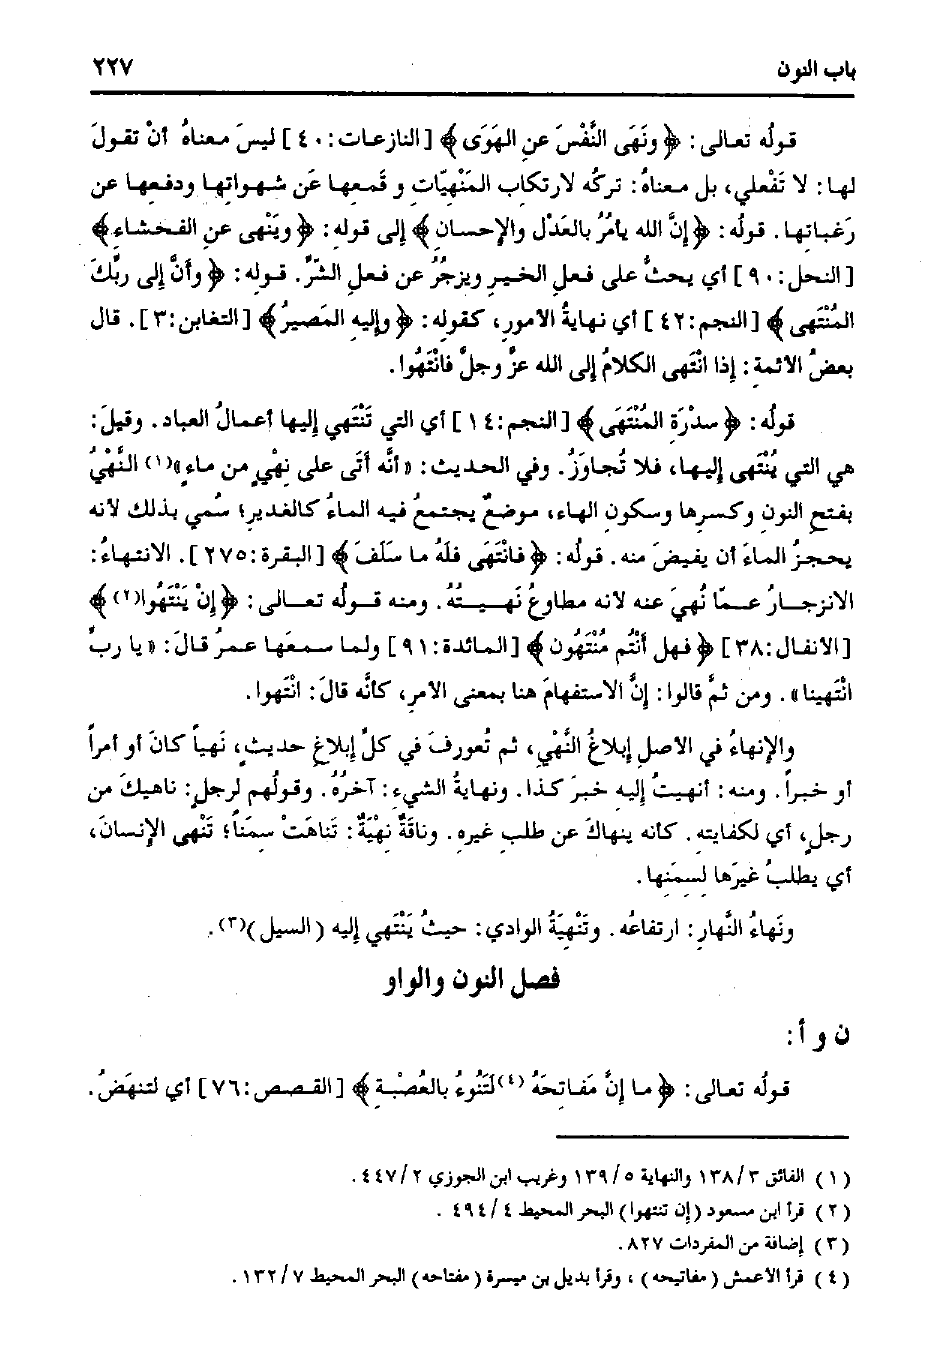 باب النون ٢٢٧
قولُه تعالى: ﴿ ونَهَى النَّفْسَ عنِ الهَوَى ﴾ [النازعات: ٤٠] ليسَ معناهُ أنْ تقولَ
لها: لا تَفْعلي، بل معناهُ: تركُه لارتكاب المَنْهيّات و قَمعِها عَن شهواتِها ودفعِها عن
رَغباتِها. قولُه: ﴿ إنَّ الله يأمُرُ بالعَدْلِ والإحسان ﴾ إلى قولِه: ﴿ ويَنْهى عنِ الفحْشاءِ ﴾
[النحل: ٩٠] أي يحثُّ على فعلِ الخيرِ ويزجُرُ عن فعلِ الشَّرِّ. قوله: ﴿ وأنَّ إلى ربِّكَ
المُنْتَهى ﴾ [النجم: ٤٢] أي نهايةُ الأمورِ، كقولِه: ﴿ وإليهِ المَصيرُ ﴾ [التغابن: ٣]. قال
بعضُ الأئمة: إذا انْتَهى الكلامُ إلى الله عزَّ وجلَّ فانْتَهُوا.
قولُه: ﴿ سدْرَةِ المُنْتَهَى ﴾ [النجم: ١٤] أي التي تَنْتَهي إليها أعمالُ العباد. وقيلَ:
هي التي يُنْتَهى إليها، فلا تُجاوَزُ. وفي الحديث: «أنَّه أتَى على نِهْيٍ من ماءٍ»(١) النَّهْيُ
بفتحِ النون وكسرِها وسكونِ الهاء، موضعٌ يجتمعُ فيه الماءُ كالغديرِ؛ سُمي بذلك لأنه
يحجزُ الماءَ أن يفيضَ منه. قولُه: ﴿ فانْتَهَى فلَهُ ما سَلَفَ ﴾ [البقرة: ٢٧٥]. الانتهاءُ:
الانزجارُ عمّا نُهيَ عنه لأنه مطاوعُ نَهيتُهُ. ومنه قولُه تعالى: ﴿ إنْ يَنْتَهُوا(٢) ﴾
[الأنفال: ٣٨] ﴿ فهل أنْتُم مُنْتَهُون ﴾ [المائدة: ٩١] ولما سمعَها عمرُ قالَ: «يا ربِّ
انْتَهينا». ومن ثمَّ قالوا: إنَّ الاستفهامَ هنا بمعنى الأمرِ، كأنَّه قالَ: انْتَهوا.
والإنهاءُ في الأصلِ إبلاغُ النَّهْيِ، ثم تُعورفَ في كلِّ إبلاغِ حديثٍ، نَهياً كانَ أو أمراً
أو خبراً. ومنه: أنهيتُ إليه خبرَ كذا. ونهايةُ الشيءِ: آخرُهُ. وقولُهم لرجلٍ: ناهيكَ من
رجلٍ، أي لكفايته. كأنه ينهاكَ عن طلبِ غيره. وناقةٌ نِهْيَةٌ: تَناهَتْ سِمَناً؛ تَنْهى الإنسانَ،
أي يطلبُ غيرَها لسِمَنها.
ونَهاءُ النَّهار: ارتفاعُه. وتَنْهِيَةُ الوادي: حيثُ يَنْتَهي إليه (السيل)(٣).
فصل النون والواو
ن و أ:
قولُه تعالى: ﴿ ما إنَّ مَفاتِحَهُ (٤) لَتَنُوءُ بالعُصْبةِ ﴾ [القصص: ٧٦] أي لتنهَضُ.
(١) الفائق ٣/ ١٣٨ والنهاية ٥/ ١٣٩ وغريب ابن الجوزي ٢/ ٤٤٧.
(٢) قرأ ابن مسعود (إن تنتهوا) البحر المحيط ٤/ ٤٩٤.
(٣) إضافة من المفردات ٨٢٧.
(٤) قرأ الأعمش (مفاتيحه)، وقرأ بديل بن ميسرة (مفتاحه) البحر المحيط ٧/ ١٣٢.